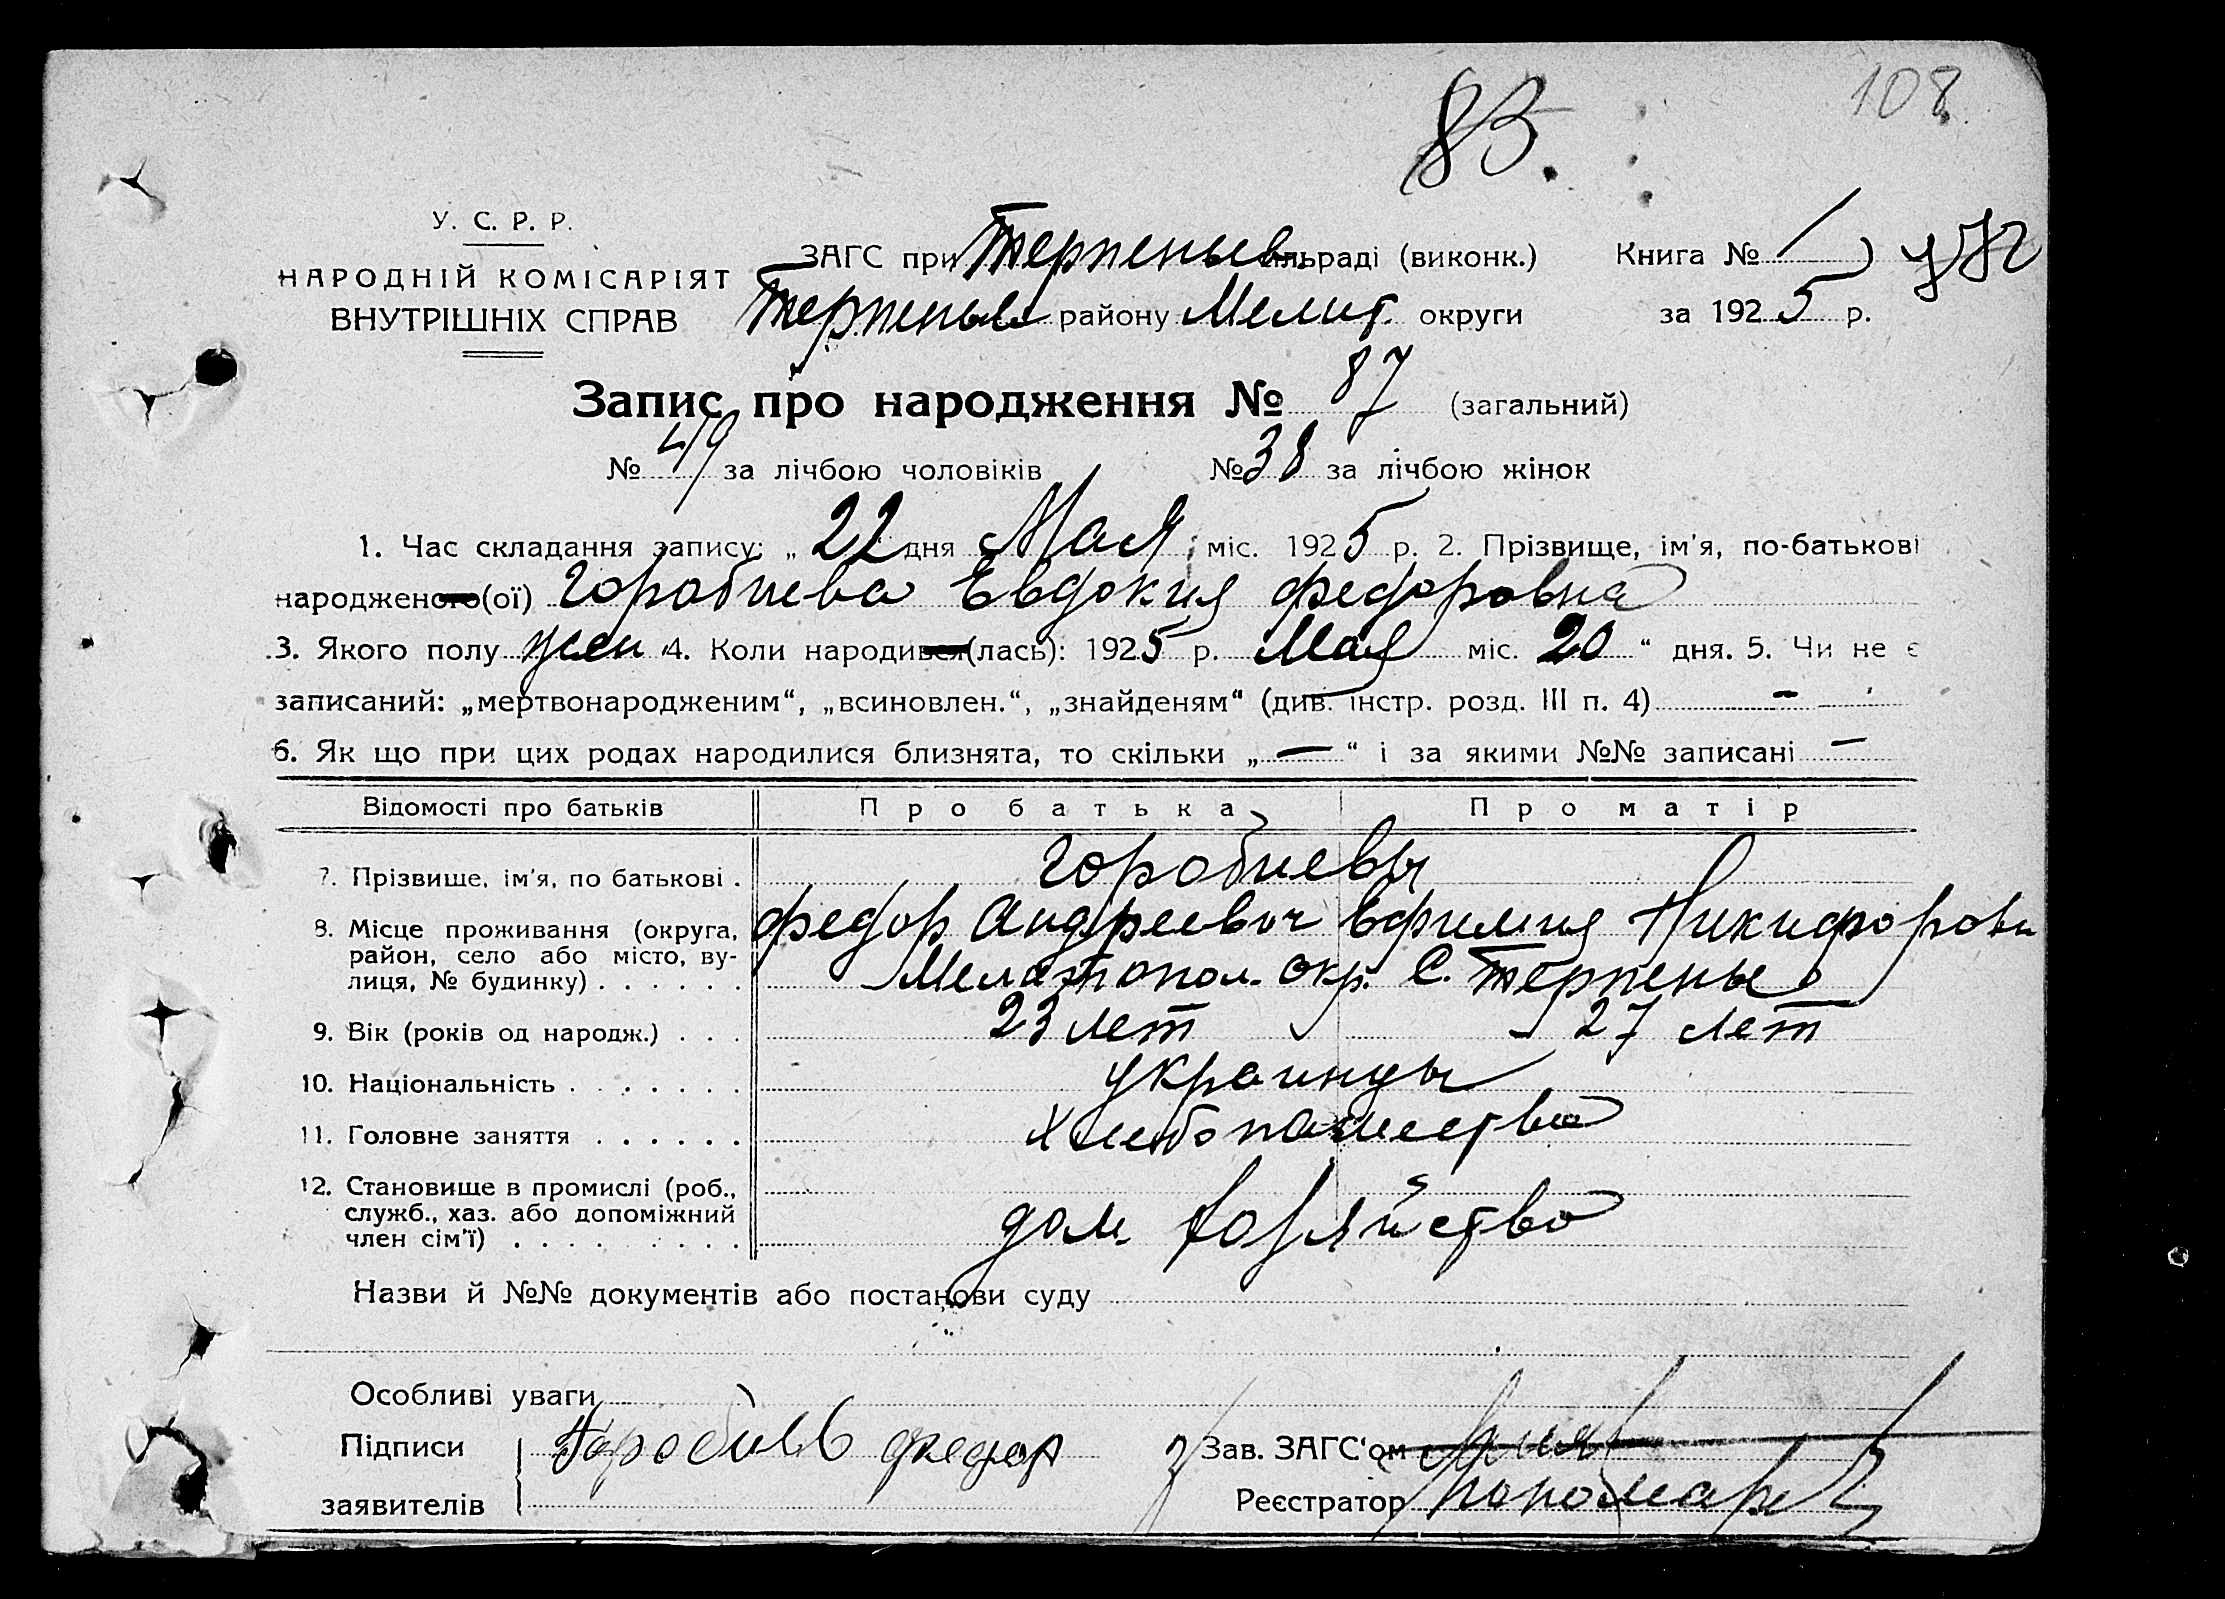 108
83.
У. С. Р. Р.
НАРОДНІЙ КОМІСАРІЯТ
ВНУТРІШНІХ СПРАВ
ЗАГС при Терпеньев сільраді (виконк.) Книга № 1
Терпеньев району Мелит. округи за 1925 р.
Запис про народження № 87 (загальний)
№ 49 за лічбою чоловіків № 38 за лічбою жінок
1. Час складання запису: „ 22 дня Мая міс. 1925 р. 2. Прізвище, ім'я, по-батькові
народженого(ої) Горобцева Евдокия Федоровна
3. Якого полу жен 4. Коли народився(лась): 1925 р. Мая міс. 20 “ дня. 5. Чи не є
записаний: „мертвонародженим“, „всиновлен.“, „знайденям“ (див. інстр. розд. III п. 4) -
6. Як що при цих родах народилися близнята, то скільки „ — “ і за якими №№ записані —
Відомості про батьків Про батька Про матір
7. Прізвище, ім'я, по батькові . Горобцевы
Федор Андреевич Ефимия Никифоровн
8. Місце проживання (округа, район, село або місто, ву-
лиця, № будинку) . . . . . . Мелитопол. окр. С. Терпенье
9. Вік (років од народж.) . . . 23 лет 27 лет
10. Національність . . . . . . . украинцы
11. Головне заняття . . . . . . хлебопашество
12. Становище в промислі (роб.,
служб., хаз. або допоміжний
член сім'ї) . . . . . . . . . дом. хозяйство
Назви й №№ документів або постанови суду
Особливі уваги
Підписи Горобцев Федор Зав. ЗАГС'ом
заявителів Реєстратор Пономарев